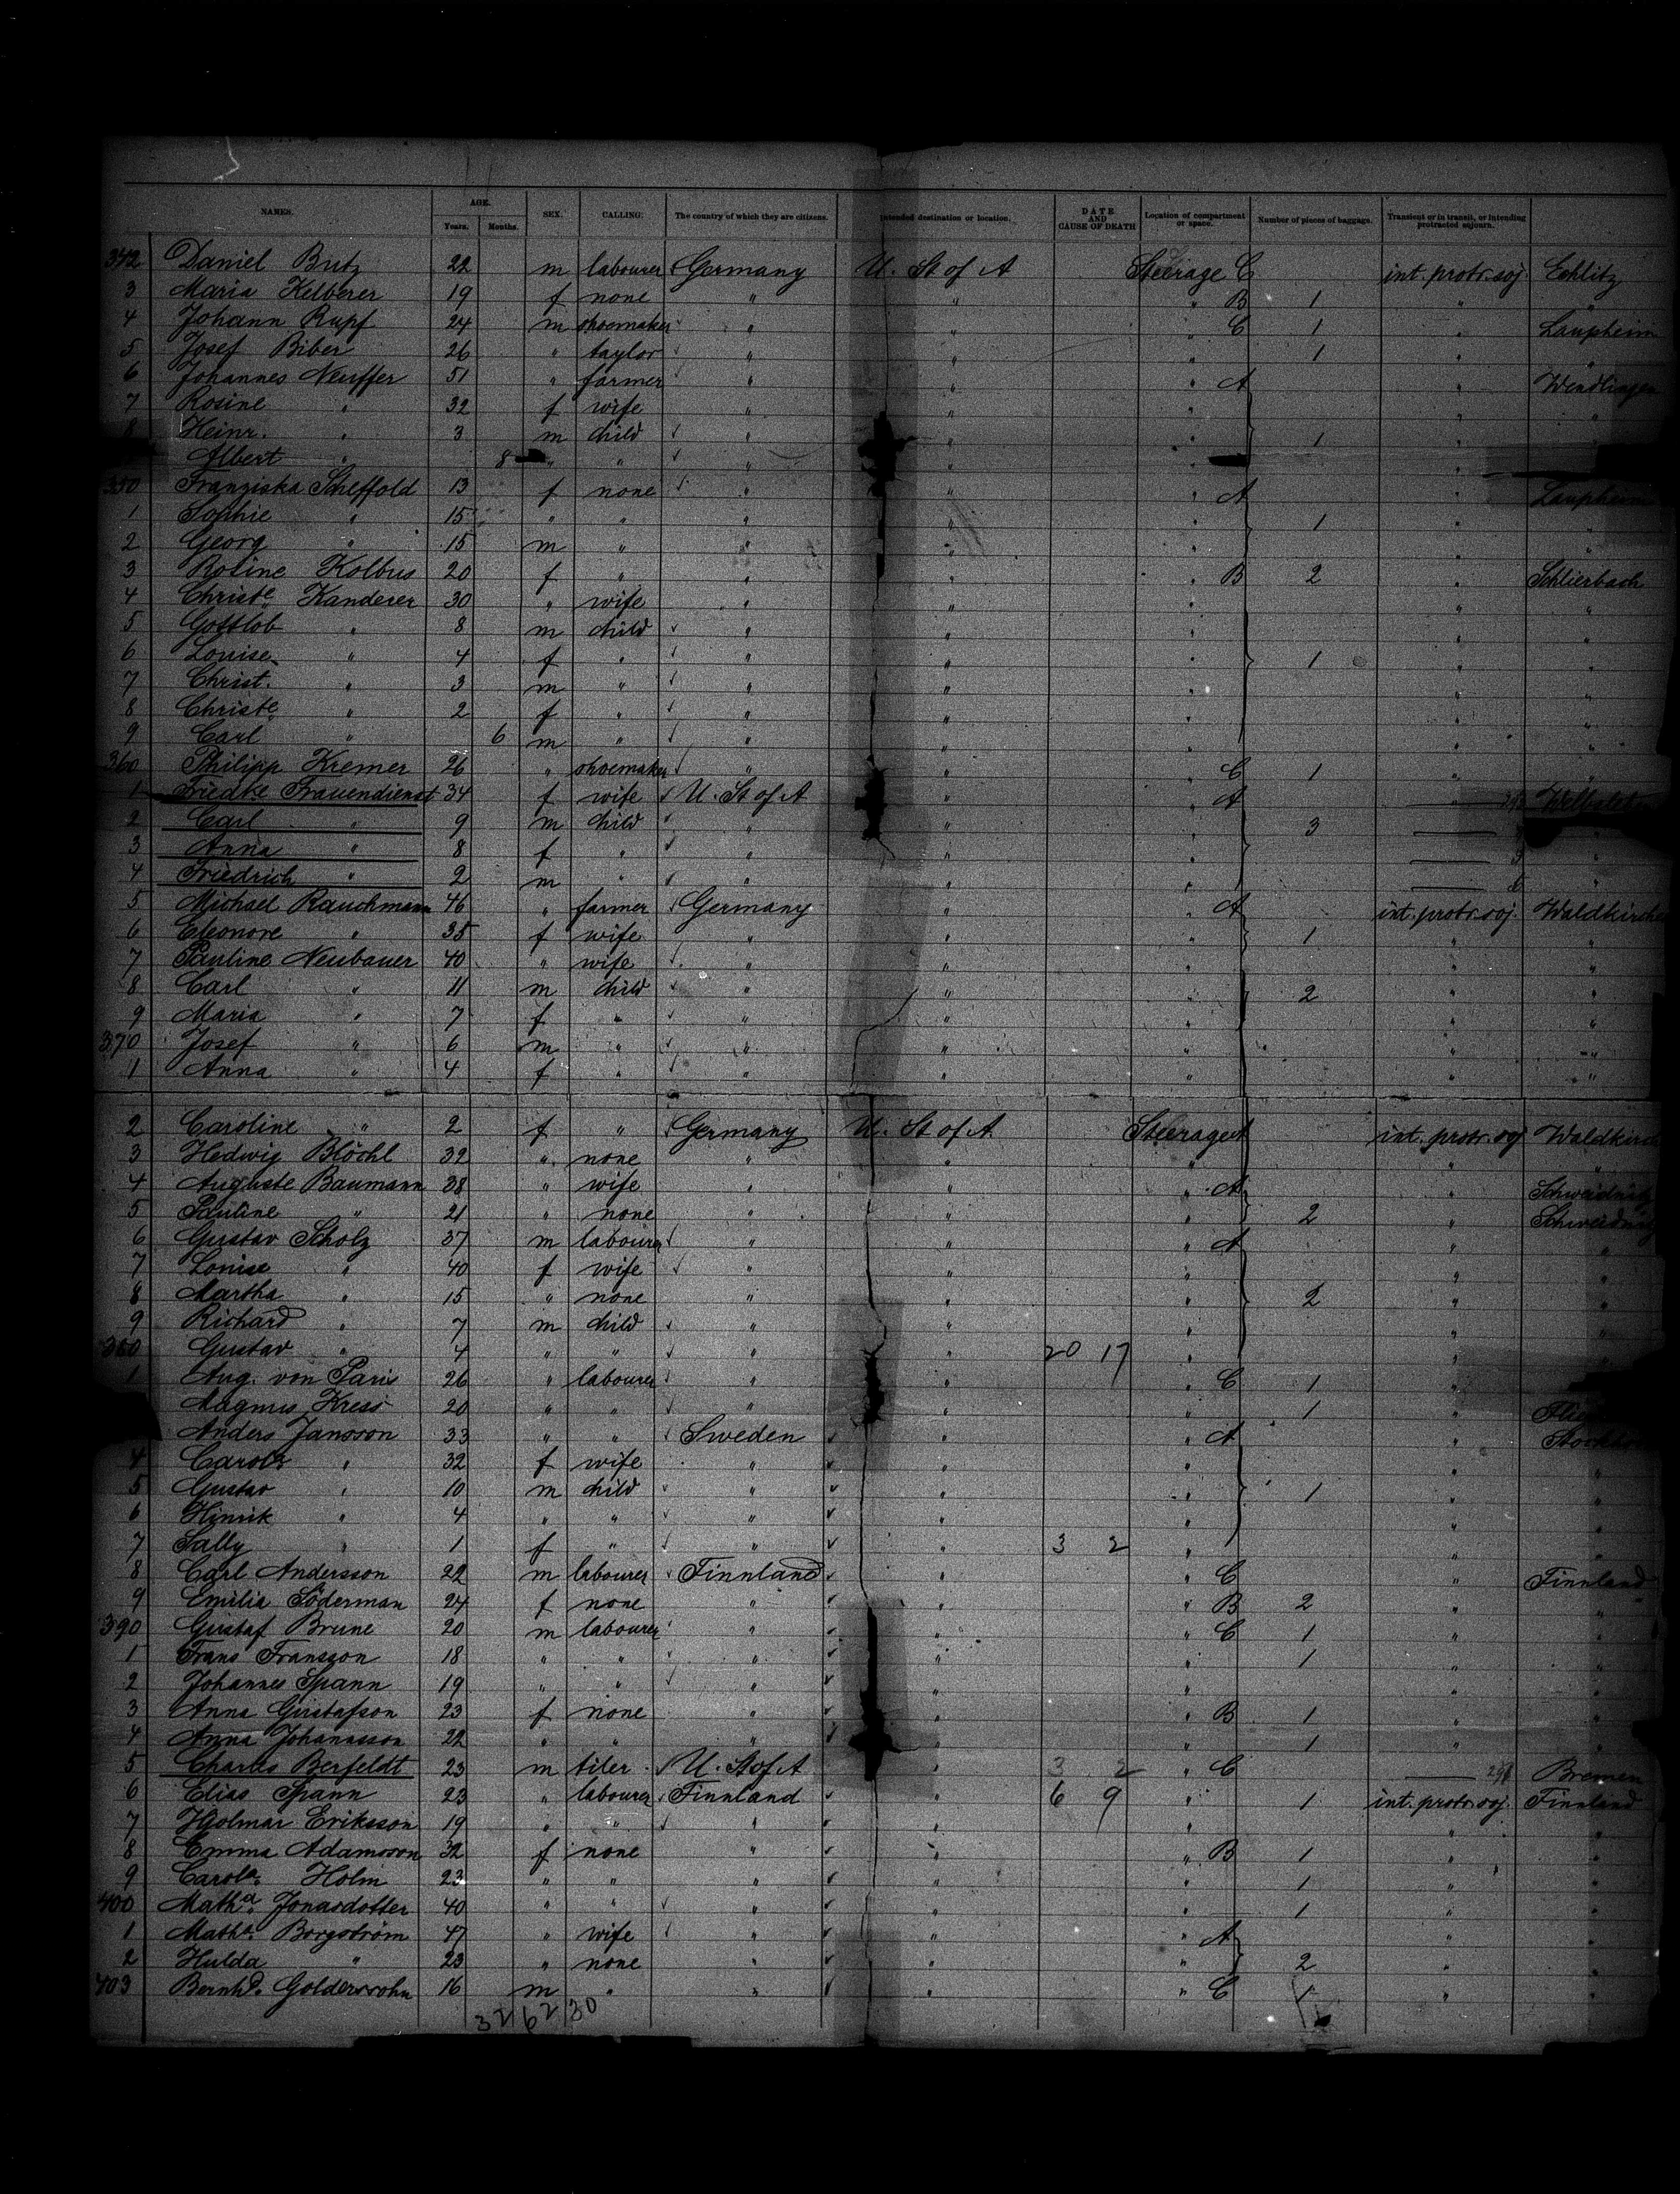 NAMES. AGE. SEX. CALLING. The country of which they are citizens. Intended destination or location. DATE AND CAUSE OF DEATH Location of compartment or space. Number of pieces of baggage. Transient or in transit, or intending protracted sojourn.
Years. Months.
342 Daniel Butz 22 m labourer Germany U. St of A Steerage C int. protr. soj. Echlitz
3 Maria Kelberer 19 f none " " " B 1 " "
4 Johann Rupf 24 m shoemaker " " " C 1 " Laupheim
5 Josef Biber 26 " taylor " " " 1 " "
6 Johannes Neuffer 51 " farmer " " " A " Wendlingen
7 Rosine " 32 f wife " " " " "
8 Heinr. " 3 m child " " " 1 "
Albert " 8 " " " " "
350 Franziska Scheffold 13 f none " " " A " Laupheim
1 Sophie " 15 " " " " " 1 " "
2 Georg " 15 m " " " " " "
3 Rosine Kolbus 20 f " " " " B 2 " Schlierbach
4 Christe Kanderer 30 " wife " " " " "
5 Gottlob " 8 m child " " " " "
6 Louise " 4 f " " " " 1 " "
7 Christ. " 3 m " " " " " "
8 Christe " 2 f " " " " " "
9 Carl " 6 m " " " " " "
360 Philipp Kremer 26 " shoemaker " " " C 1 " "
1 Friedke Frauendienst 34 f wife U. St of A " " A
2 Carl " 9 m child " " " 3 "
3 Anna " 8 f " " " " "
4 Friedrich " 2 m " " " " "
5 Michael Rauchmann 46 " farmer Germany " " A int. protr. soj. Waldkirch
6 Eleonore " 35 f wife " " " 1 " "
7 Pauline Neubauer 40 " wife " " " " "
8 Carl " 11 m child " " " 2 " "
9 Maria " 7 f " " " " " "
370 Josef " 6 m " " " " " "
1 Anna " 4 f " " " " " "
2 Caroline " 2 f " Germany U. St of A Steerage A int. protr. soj Waldkirch
3 Hedwig Blöchl 32 " none " " " " "
4 Auguste Baumann 38 " wife " " " A " Schweidnitz
5 Pauline " 21 " none " " " 2 " Schweidnitz
6 Gustav Scholz 37 m labourer " " " A " "
7 Louise " 40 f wife " " " " "
8 Martha " 15 " none " " " 2 " "
9 Richard " 7 m child " " " " "
380 Gustav " 4 " " " " 20 17 " " "
1 Aug. von Paris 26 " labourer " " " C 1 "
Magnus Kress 20 " " " " " 1 "
Anders Jansson 33 " " Sweden " " A "
4 Carola " 32 f wife " " " " "
5 Gustav " 10 m child " " " 1 " "
6 Hinrik " 4 " " " " " " "
7 Sally " 1 f " " " 3 2 " " "
8 Carl Andersson 22 m labourer Finnland " " C " Finnland
9 Emilia Söderman 24 f none " " " B 2 " "
390 Gustaf Brune 20 m labourer " " " C 1 " "
1 Frans Fransson 18 " " " " " 1 " "
2 Johannes Spann 19 " " " " " " "
3 Anna Gustafson 23 f none " " " B 1 " "
4 Anna Johansson 22 " " " " " 1 " "
5 Charles Berfeldt 23 m tiler U. St of A " 3 2 " C Bremen
6 Elias Spann 23 " labourer Finnland " 6 9 " 1 int. protr. soj. Finnland
7 Hjolmar Eriksson 19 " " " " " " "
8 Emma Adamsson 32 f none " " " B 1 " "
9 Carola Holm 23 " " " " " 1 " "
400 Matha Jonasdotter 40 " " " " " 1 " "
1 Matha Borgström 47 " wife " " " A " "
2 Hulda " 23 " none " " " 2 " "
403 Bernhd. Goldersohn 16 m " " " " C 1 " "
32 62 30